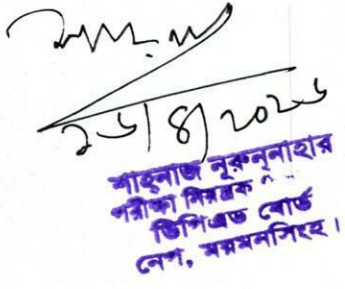 ২৬/৪/২০২৬
শাহনাজ নূরুন্‌নাহার
পরীক্ষা নিয়ন্ত্রক
ডিপিএড বোর্ড
নেপ, ময়মনসিংহ।